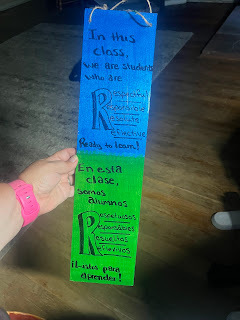 In this
class,
we are students
who are
Respectful
Responsible
Resolute
Reflective
Ready to Learn!
En esta
clase,
somos
alumnos
Respetuosos
Responsables
Resueltos
Reflexivos
¡Listos para
aprender!